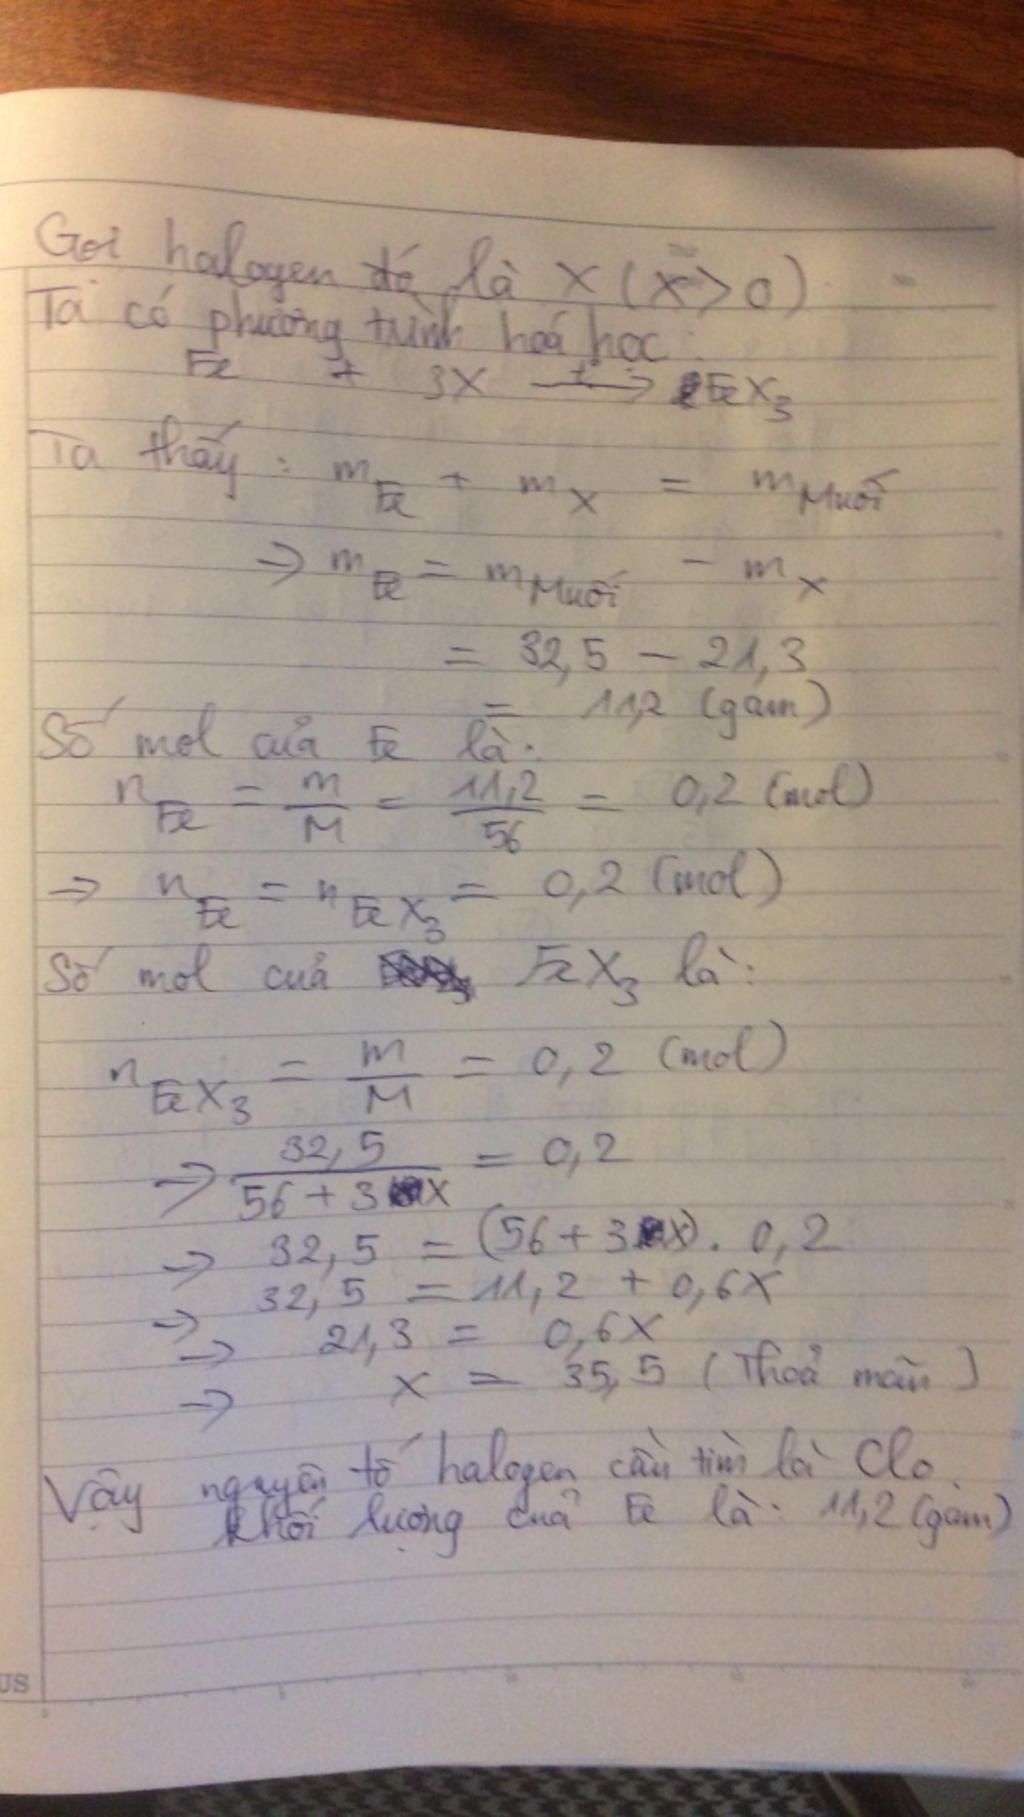 Gọi halogen đó là X (X > 0)
Ta có phương trình hoá học:
Fe + 3X →(t°) FeX₃
Ta thấy: m_Fe + m_X = m_Muối
⇒ m_Fe = m_Muối − m_X
= 32,5 − 21,3
= 11,2 (gam)
Số mol của Fe là:
n_Fe = m/M = 11,2/56 = 0,2 (mol)
→ n_Fe = n_FeX₃ = 0,2 (mol)
Số mol của FeX₃ là:
n_FeX₃ = m/M = 0,2 (mol)
⇒ 32,5/(56 + 3X) = 0,2
⇒ 32,5 = (56 + 3X) . 0,2
⇒ 32,5 = 11,2 + 0,6X
⇒ 21,3 = 0,6X
⇒ X = 35,5 (Thoả mãn)
Vậy nguyên tố halogen cần tìm là Clo.
Khối lượng của Fe là: 11,2 (gam)
US